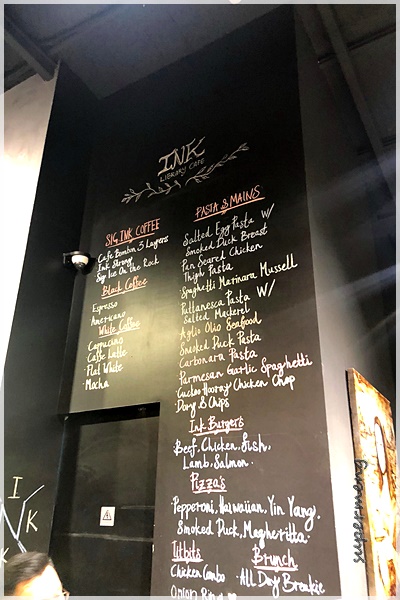 INK
LIBRARY CAFE
SIG INK COFFEE
Cafe Bombon 3 Layers
Ink Strong
Sig Ice On the Rock
Black Coffee
Espresso
Americano
White Coffee
Cappucino
Caffe Latte
Flat White
Mocha
PASTA & MAINS
Salted Egg Pasta W/
Smoked Duck Breast
Pan Seared Chicken
Thigh Pasta
Spaghetti Marinara Mussell
Puttanesca Pasta W/
Salted Mackerel
Aglio Olio Seafood
Smoked Duck Pasta
Carbonara Pasta
Parmesan Garlic Spaghetti
Cuckoo Hooray Chicken Chop
Dory & Chips
Ink Burgers
Beef, Chicken, Fish,
Lamb, Salmon.
Pizza's
Pepperoni, Haiwaiian, Yin Yang.
Smoked Duck, Magheritta.
Titbits
Chicken Combo
Onion Ring
Brunch
All Day Breakie
I
N K
K